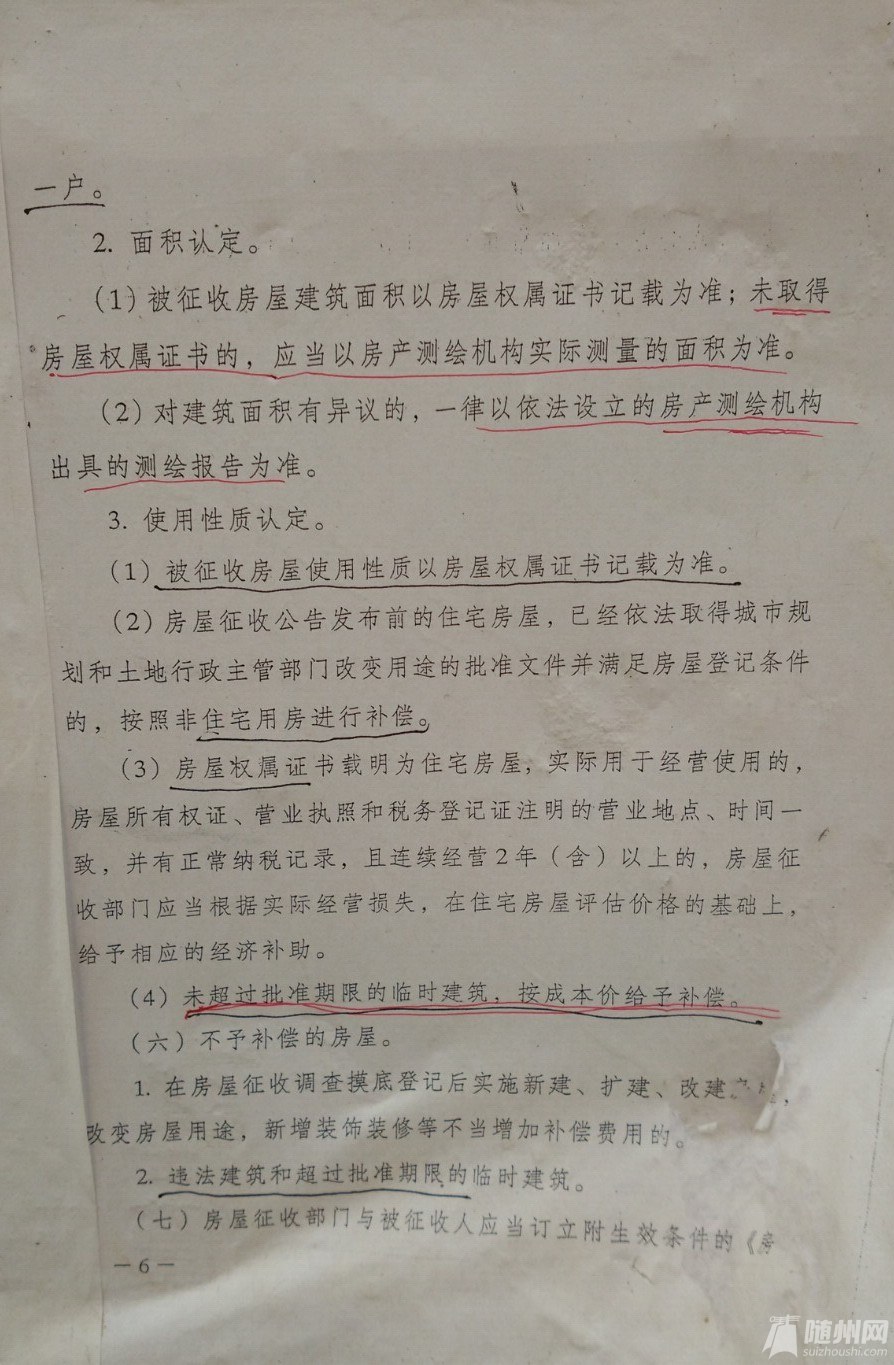 一户。
2. 面积认定。
(1)被征收房屋建筑面积以房屋权属证书记载为准；未取得
房屋权属证书的，应当以房产测绘机构实际测量的面积为准。
(2)对建筑面积有异议的，一律以依法设立的房产测绘机构
出具的测绘报告为准。
3. 使用性质认定。
(1)被征收房屋使用性质以房屋权属证书记载为准。
(2)房屋征收公告发布前的住宅房屋，已经依法取得城市规
划和土地行政主管部门改变用途的批准文件并满足房屋登记条件
的，按照非住宅用房进行补偿。
(3)房屋权属证书载明为住宅房屋，实际用于经营使用的，
房屋所有权证、营业执照和税务登记证注明的营业地点、时间一
致，并有正常纳税记录，且连续经营2年（含）以上的，房屋征
收部门应当根据实际经营损失，在住宅房屋评估价格的基础上，
给予相应的经济补助。
(4)未超过批准期限的临时建筑，按成本价给予补偿。
（六）不予补偿的房屋。
1. 在房屋征收调查摸底登记后实施新建、扩建、改建，
改变房屋用途，新增装饰装修等不当增加补偿费用的。
2. 违法建筑和超过批准期限的临时建筑。
（七）房屋征收部门与被征收人应当订立附生效条件的《房
—6—
随州网
suizhoushi.com